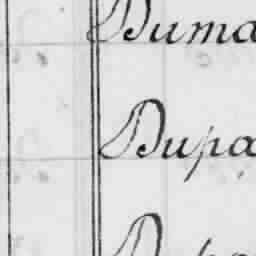 Duma
Dupa